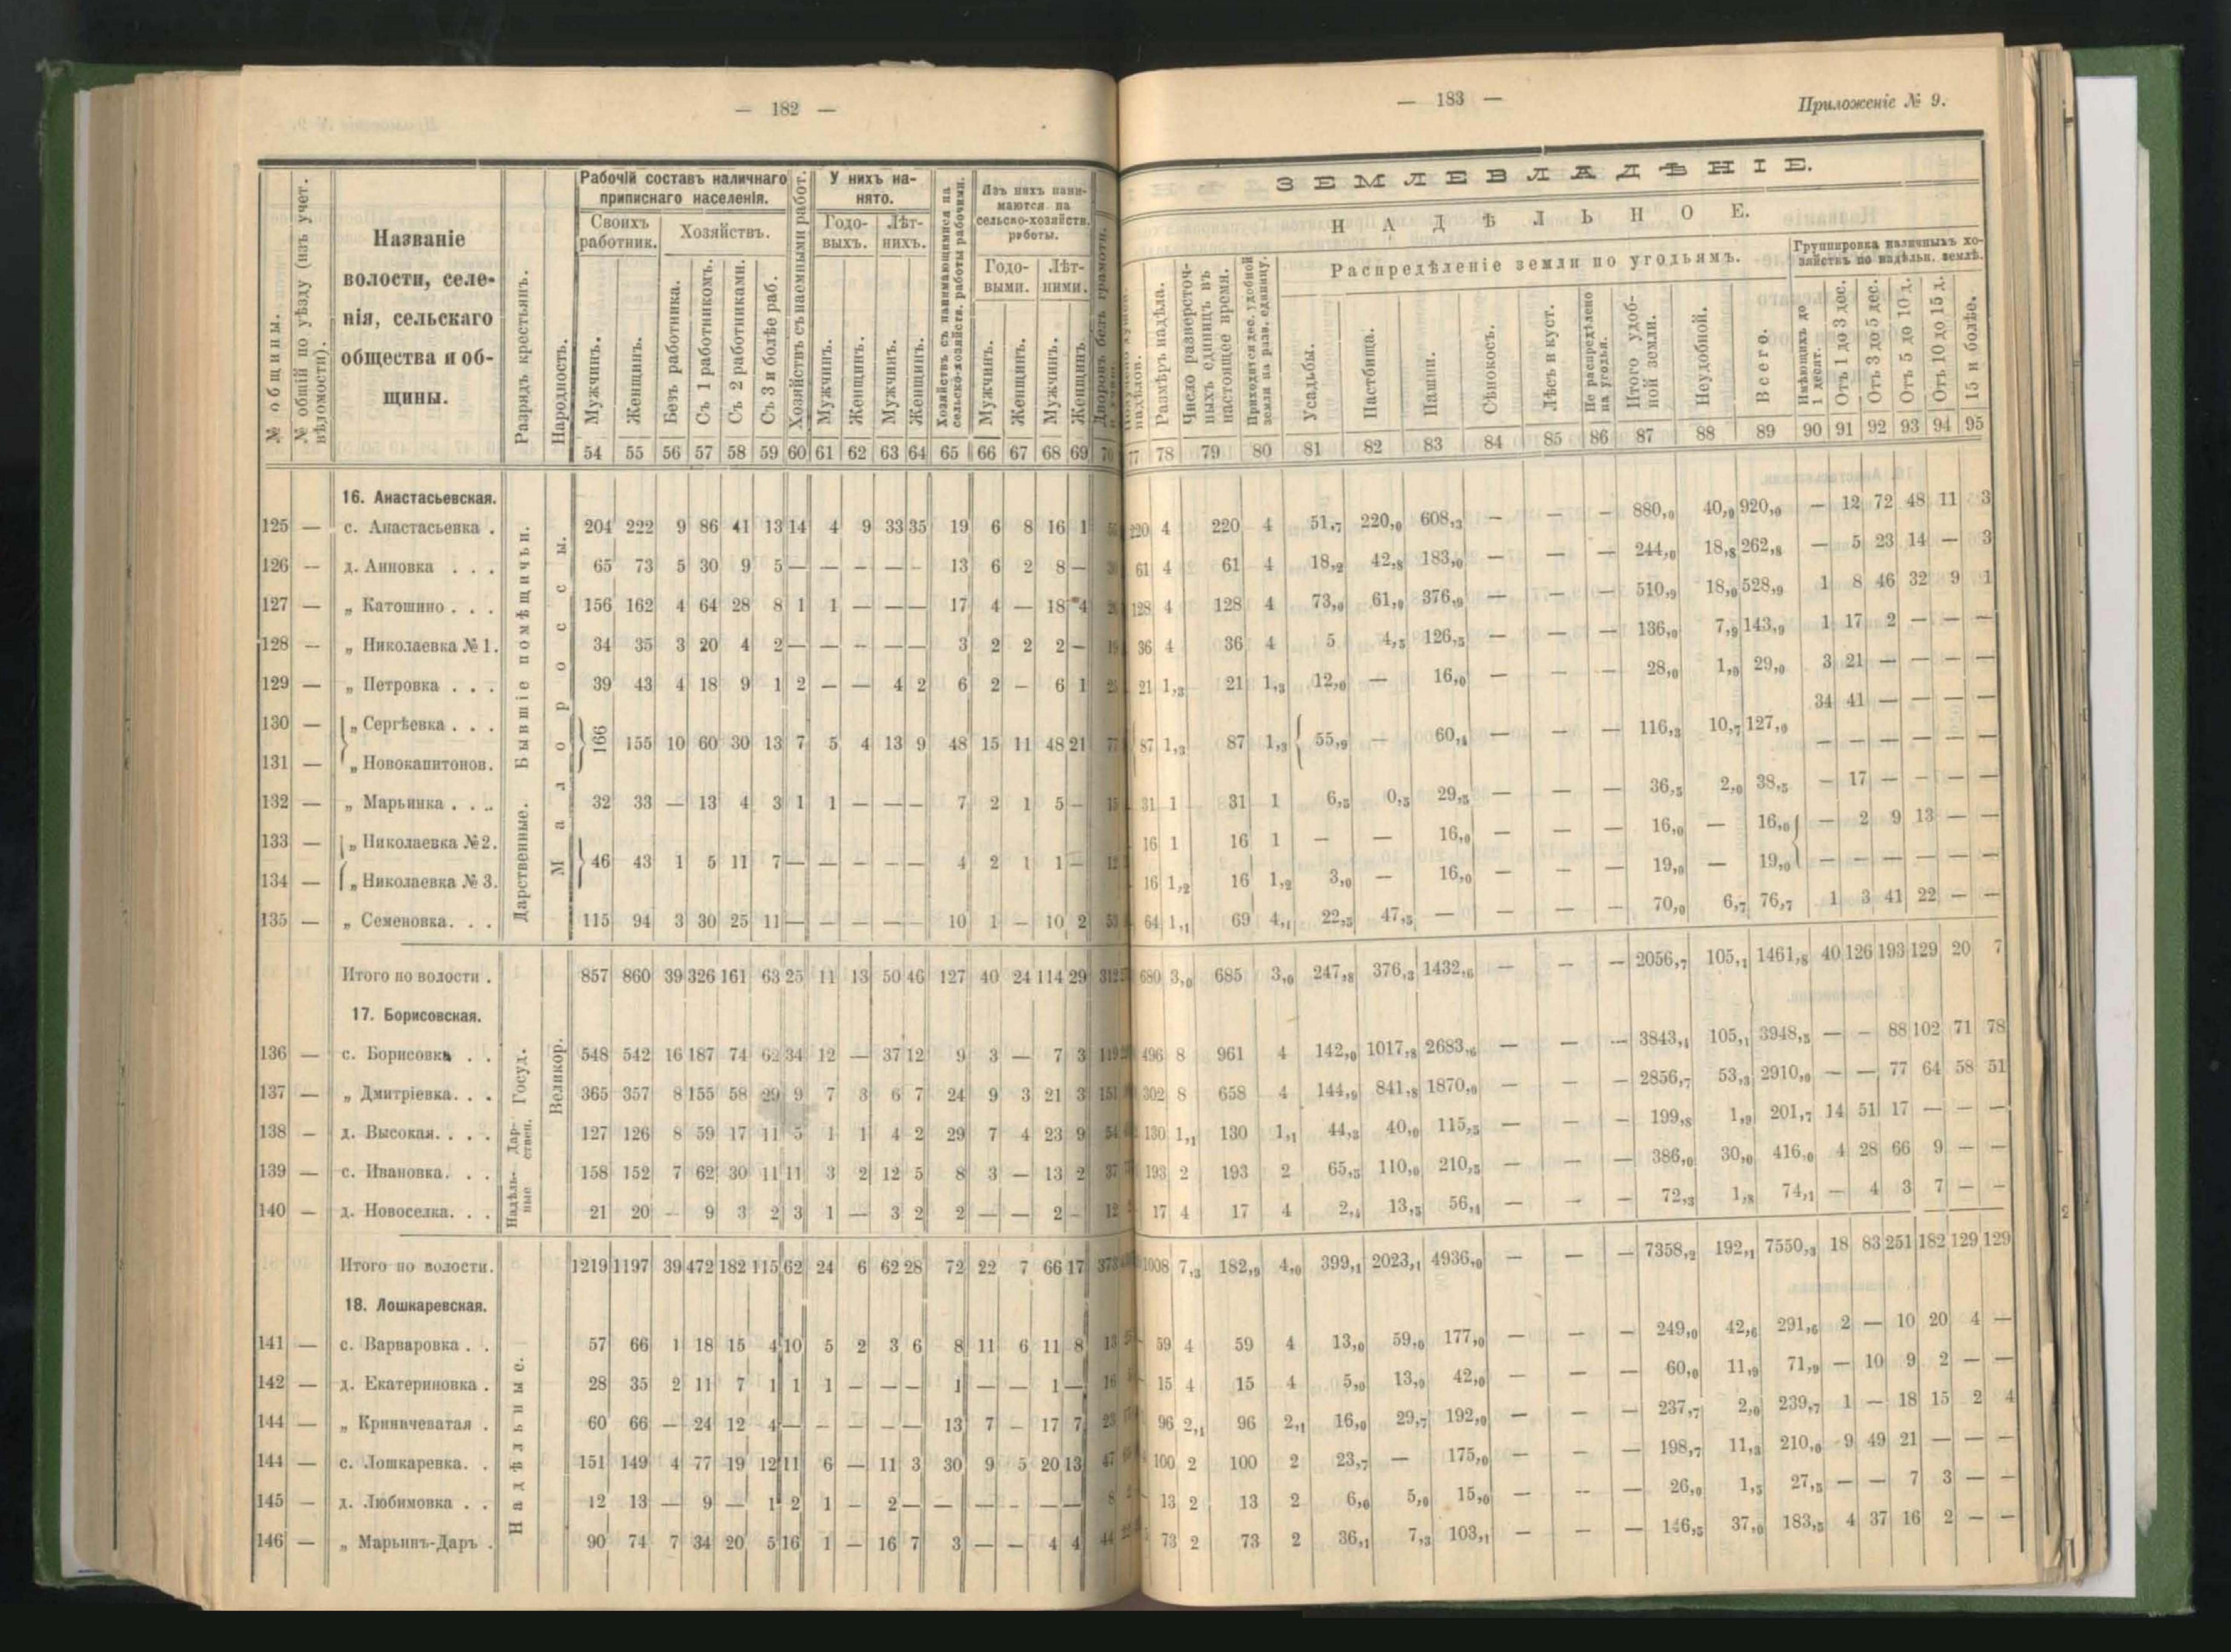 — 182 —
№ общины.
№ общій по уѣзду (изъ учет. вѣдомости).
Названіе
волости, селе-
нія, сельскаго
общества и об-
щины.
Разрядъ крестьянъ.
Народность.
Рабочій составъ наличнаго
приписнаго населенія.
Своихъ
работник.
Хозяйствъ.
Мужчинъ.
Женщинъ.
Безъ работника.
Съ 1 работникомъ.
Съ 2 работниками.
Съ 3 и болѣе раб.
Хозяйствъ съ наемными работ.
У нихъ на-
нято.
Годо-
выхъ.
Лѣт-
нихъ.
Мужчинъ.
Женщинъ.
Мужчинъ.
Женщинъ.
Хозяйствъ съ нанимающимися на
сельско-хозяйств. работы рабочими.
Изъ нихъ нани-
маются на
сельско-хозяйств.
работы.
Годо-
выми.
Лѣт-
ними.
Мужчинъ.
Женщинъ.
Мужчинъ.
Женщинъ.
54 55 56 57 58 59 60 61 62 63 64 65 66 67 68 69 70
16. Анастасьевская.
125 — с. Анастасьевка . 204 222 9 86 41 13 14 4 9 33 35 19 6 8 16 1
126 — д. Анновка . . . 65 73 5 30 9 5 — — — — — 13 6 2 8 —
127 — „ Катошино . . . 156 162 4 64 28 8 1 1 — — — 17 4 — 18 4
128 — „ Николаевка № 1. 34 35 3 20 4 2 — — — — — 3 2 2 2 — 19
129 — „ Петровка . . . 39 43 4 18 9 1 2 — — 4 2 6 2 — 6 1
130 — „ Сергѣевка . . .
166 155 10 60 30 13 7 5 4 13 9 48 15 11 48 21 77
131 — „ Новокапитонов.
132 — „ Марьинка . . . 32 33 — 13 4 3 1 1 — — — 7 2 1 5 — 15
133 — „ Николаевка №2.
46 43 1 5 11 7 — — — — — 4 2 1 1 — 12
134 — „ Николаевка № 3.
135 — „ Семеновка. . . 115 94 3 30 25 11 — — — — — 10 1 — 10 2 53
Бывшіе помѣщичьи.
Дарственные.
Малороссы.
Итого по волости . 857 860 39 326 161 63 25 11 13 50 46 127 40 24 114 29 312
17. Борисовская.
136 — с. Борисовка . . 548 542 16 187 74 62 34 12 — 37 12 9 3 — 7 3 119
137 — „ Дмитріевка. . . 365 357 8 155 58 29 9 7 3 6 7 24 9 3 21 3 151
138 — д. Высокая. . . . 127 126 8 59 17 11 5 1 1 4 2 29 7 4 23 9 54
139 — с. Ивановка. . . 158 152 7 62 30 11 11 3 2 12 5 8 3 — 13 2 37
140 — д. Новоселка. . . 21 20 — 9 3 2 3 1 — 3 2 2 — — 2 — 12
Госуд.
Дар-
ствен.
Надѣль-
ные
Великор.
Итого по волости. 1219 1197 39 472 182 115 62 24 6 62 28 72 22 7 66 17 373
18. Лошкаревская.
141 — с. Варваровка . . 57 66 1 18 15 4 10 5 2 3 6 8 11 6 11 8 13
142 — д. Екатериновка . 28 35 2 11 7 1 1 1 — — — 1 — — 1 — 16
144 — „ Криничеватая . 60 66 — 24 12 4 — — — — — 13 7 — 17 7 23
144 — с. Лошкаревка. . 151 149 4 77 19 12 11 6 — 11 3 30 9 5 20 13 47
145 — д. Любимовка . . 12 13 — 9 — 1 2 1 — 2 — — — — — — 8
146 — „ Марьинъ-Даръ . 90 74 7 34 20 5 16 1 — 16 7 3 — — 4 4 44
Надѣльные.
— 183 —
Приложеніе № 9.
ЗЕМЛЕВЛАДѢНІЕ.
НАДѢЛЬНОЕ.
Размѣръ надѣла.
Число разверсточ-
ныхъ единицъ въ
настоящее время.
Приходится дес. удобной
земли на разв. единицу.
Распредѣленіе земли по угодьямъ.
Усадьбы.
Пастбища.
Пашни.
Сѣнокосъ.
Лѣсъ и куст.
Не распредѣлено
на угодья.
Итого удоб-
ной земли.
Неудобной.
Всего.
Группировка наличныхъ хо-
зяйствъ по надѣльн. землѣ.
Имѣющихъ до
1 десят.
Отъ 1 до 3 дес.
Отъ 3 до 5 дес.
Отъ 5 до 10 д.
Отъ 10 до 15 д.
15 и болѣе.
77 78 79 80 81 82 83 84 85 86 87 88 89 90 91 92 93 94 95
220 4 220 4 51,7 220,0 608,3 — — — 880,0 40,0 920,0 — 12 72 48 11 3
61 4 61 4 18,2 42,8 183,0 — — — 244,0 18,8 262,8 — 5 23 14 — 3
128 4 128 4 73,0 61,0 376,9 — — — 510,9 18,0 528,9 1 8 46 32 9 1
36 4 36 4 5 4,5 126,5 — — — 136,0 7,9 143,9 1 17 2 — — —
21 1,3 21 1,3 12,0 — 16,0 — — — 28,0 1,0 29,0 3 21 — — — —
34 41 — — — —
87 1,3 87 1,3 55,9 — 60,4 — — — 116,3 10,7 127,0
— — — — — —
31 1 31 1 6,5 0,5 29,5 — — — 36,5 2,0 38,5 — 17 — — — —
16 1 16 1 — — 16,0 — — — 16,0 — 16,0 — 2 9 13 — —
16 1,2 16 1,2 3,0 — 16,0 — — — 19,0 — 19,0 — — — — — —
64 1,1 69 4,1 22,5 47,5 — — — — 70,0 6,7 76,7 1 3 41 22 — —
680 3,0 685 3,0 247,8 376,3 1432,6 — — — 2056,7 105,1 1461,8 40 126 193 129 20 7
496 8 961 4 142,0 1017,8 2683,6 — — — 3843,4 105,1 3948,5 — — 88 102 71 78
302 8 658 4 144,9 841,8 1870,0 — — — 2856,7 53,3 2910,0 — — 77 64 58 51
130 1,1 130 1,1 44,3 40,0 115,5 — — — 199,8 1,9 201,7 14 51 17 — — —
193 2 193 2 65,5 110,0 210,5 — — — 386,0 30,0 416,0 4 28 66 9 — —
17 4 17 4 2,4 13,5 56,4 — — — 72,3 1,8 74,1 — 4 3 7 — —
1008 7,3 182,9 4,0 399,1 2023,1 4936,0 — — — 7358,2 192,1 7550,3 18 83 251 182 129 129
59 4 59 4 13,0 59,0 177,0 — — — 249,0 42,6 291,6 2 — 10 20 4 —
15 4 15 4 5,0 13,0 42,0 — — — 60,0 11,9 71,9 — 10 9 2 — —
96 2,1 96 2,1 16,0 29,7 192,0 — — — 237,7 2,0 239,7 1 — 18 15 2 4
100 2 100 2 23,7 — 175,0 — — — 198,7 11,3 210,0 9 49 21 — — —
13 2 13 2 6,0 5,0 15,0 — — — 26,0 1,5 27,5 — — 7 3 — —
73 2 73 2 36,1 7,3 103,1 — — — 146,5 37,0 183,5 4 37 16 2 — —